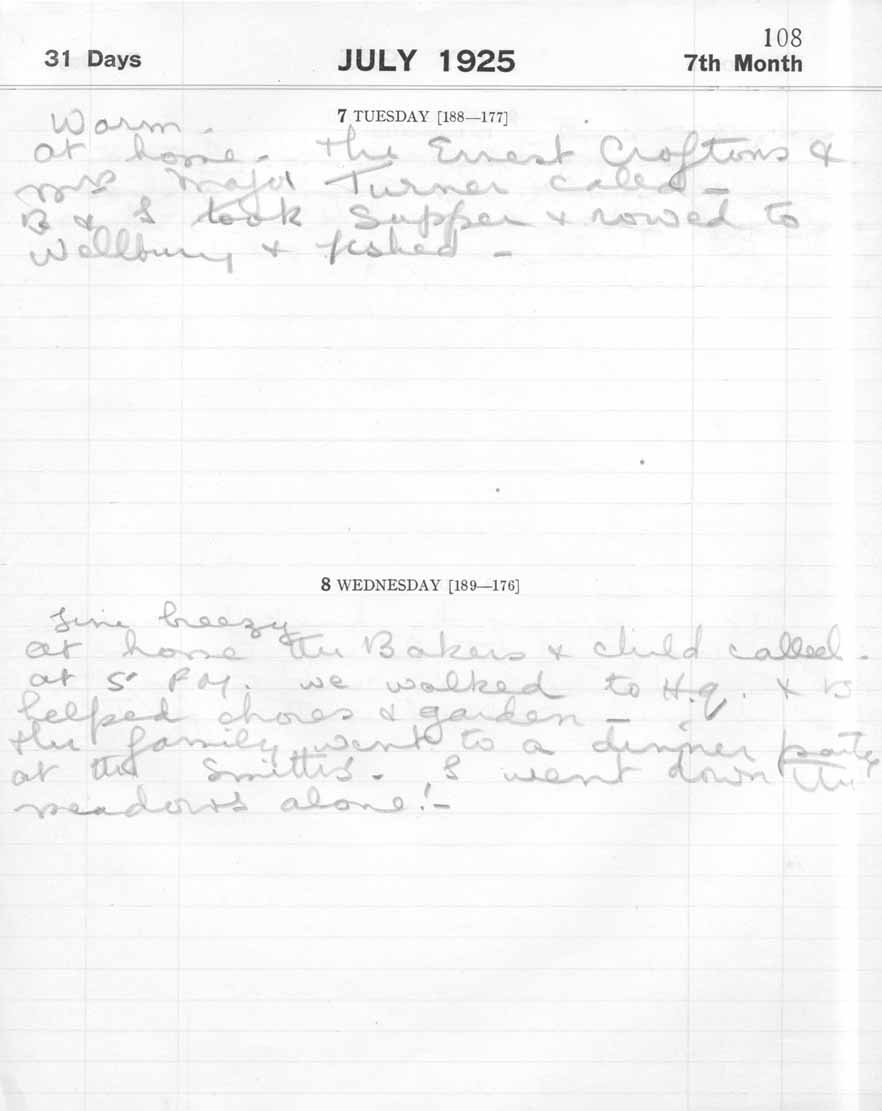 108
31 Days JULY 1925 7th Month
7 TUESDAY [188—177]
Warm.
at home. The Ernest Croftons &
Mrs Major Turner called -
B & I took Supper & rowed to
Wellbury & fished -
8 WEDNESDAY [189—176]
Fine breezy
at home the Bakers & child called -
at 5 P.M. we walked to H.q. & B
helped chores & garden -
the family went to a dinner party
at the Smiths'. I went down the
meadows alone! -